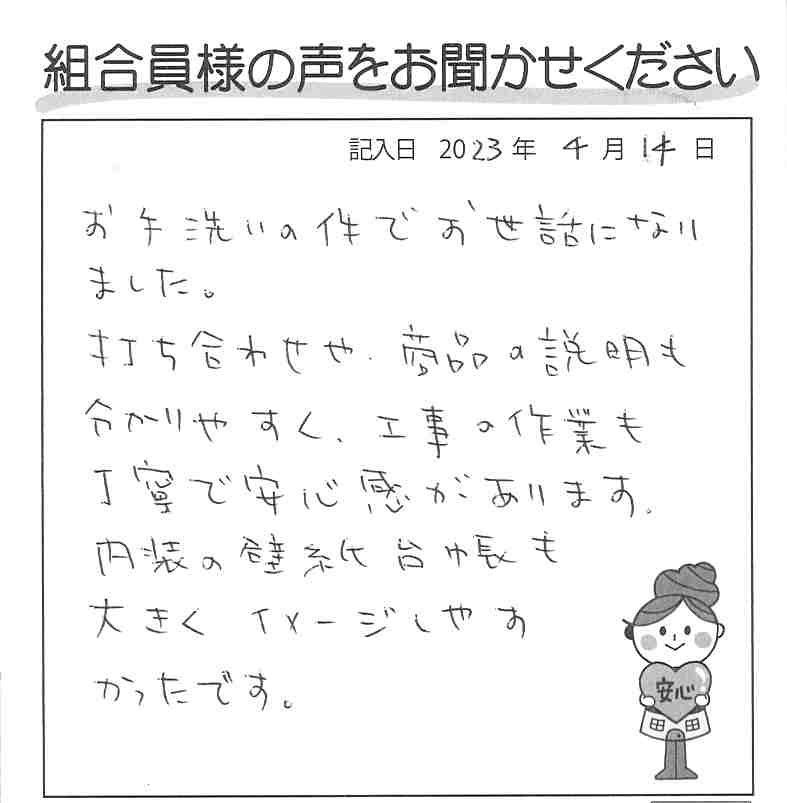 組合員様の声をお聞かせください
記入日 2023年 4月 14日
お手洗いの件でお世話になり
ました。
打ち合わせや、商品の説明も
分かりやすく、工事の作業も
丁寧で安心感があります。
内装の壁紙台帳も
大きくイメージしやす
かったです。
安心